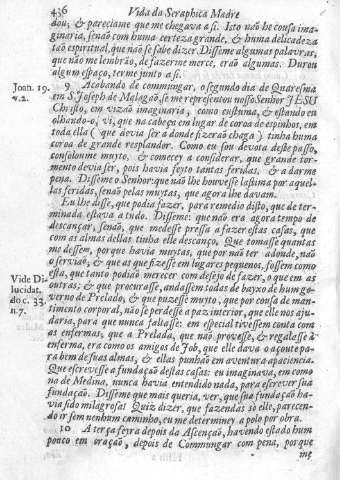 436 Vida da Seraphica Madre
dou; & pareciame que me chegava a si. Isto naõ he cousa ima-
ginaria, senaõ com huma certeza grande, & huma delicadeza
taõ espiritual, que naõ se sabe dizer. Disseme algumas palavras,
que naõ me lembraõ, de fazerme merce, eraõ algumas. Durou
algum espaço, terme junto a si.
Joan. 19.
v. 2.
9. Acabando de commungar, o segundo dia de Quaresma
em S. Joseph de Malagaõ se me representou nosso Senhor JESU
Christo, em vizaõ imaginaria, como costuma, & estando eu
olhando-o, vi, que na cabeça em lugar de coroa de espinhos, em
toda ella ( que devia ser a donde fizeraõ chaga ) tinha huma
coroa de grande resplandor. Como eu sou devota deste passo,
consoloume muyto, & comecey a considerar, que grande tor-
mento devia ser, pois havia feyto tantas feridas, & a darme
pena. Disseme o Senhor: que naõ lhe houvesse lastima por aquel-
las feridas, senaõ pelas muytas, que agora lhe davam.
Eu lhe disse, que podia fazer, para remedio disto, que de ter-
minada estava a tudo. Disseme: que naõ era agora tempo de
descançar, senaõ, que medesse pressa a fazer estas casas, que
com as almas dellas tinha elle descanço. Que tomasse quantas
me dessem, porque havia muytas, que por naõ ter adonde, naõ
o serviaõ, & que as que fizesse em lugares pequenos, fossem como
esta, que tanto podiaõ merecer com desejo de fazer, o que em as
Vide Di-
lucidat.
do c. 33.
n. 7.
outras; & que procurasse, andassem todas de bayxo de hum go-
verno de Prelado, & que puzesse muyto, que por cousa de man-
timento corporal, naõ se perdesse a paz interior, que elle nos aju-
daria, para que nunca faltasse: em especial tivessem conta com
as enfermas, que a Prelada, que naõ provesse, & regalasse à
enferma, era como os amigos de Job, que elle dava o açoute pa-
ra bem de suas almas, & ellas punhaõ em aventura a paciencia.
Que escrevesse a fundaçaõ destas casas: eu imaginava, em como
na de Medina, nunca havia entendido nada, para escrever sua
fundaçaõ. Disseme que mais queria, ver, que sua fundaçaõ ha-
via sido milagrosa? Quiz dizer, que fazendas só elle, parecen-
do ir sem nenhum caminho, eu me determiney a polo por obra.
10 A terça feyra depois da Ascençaõ, havendo estado hum
pouco em oraçaõ, depois de Commungar com pena, porque
me